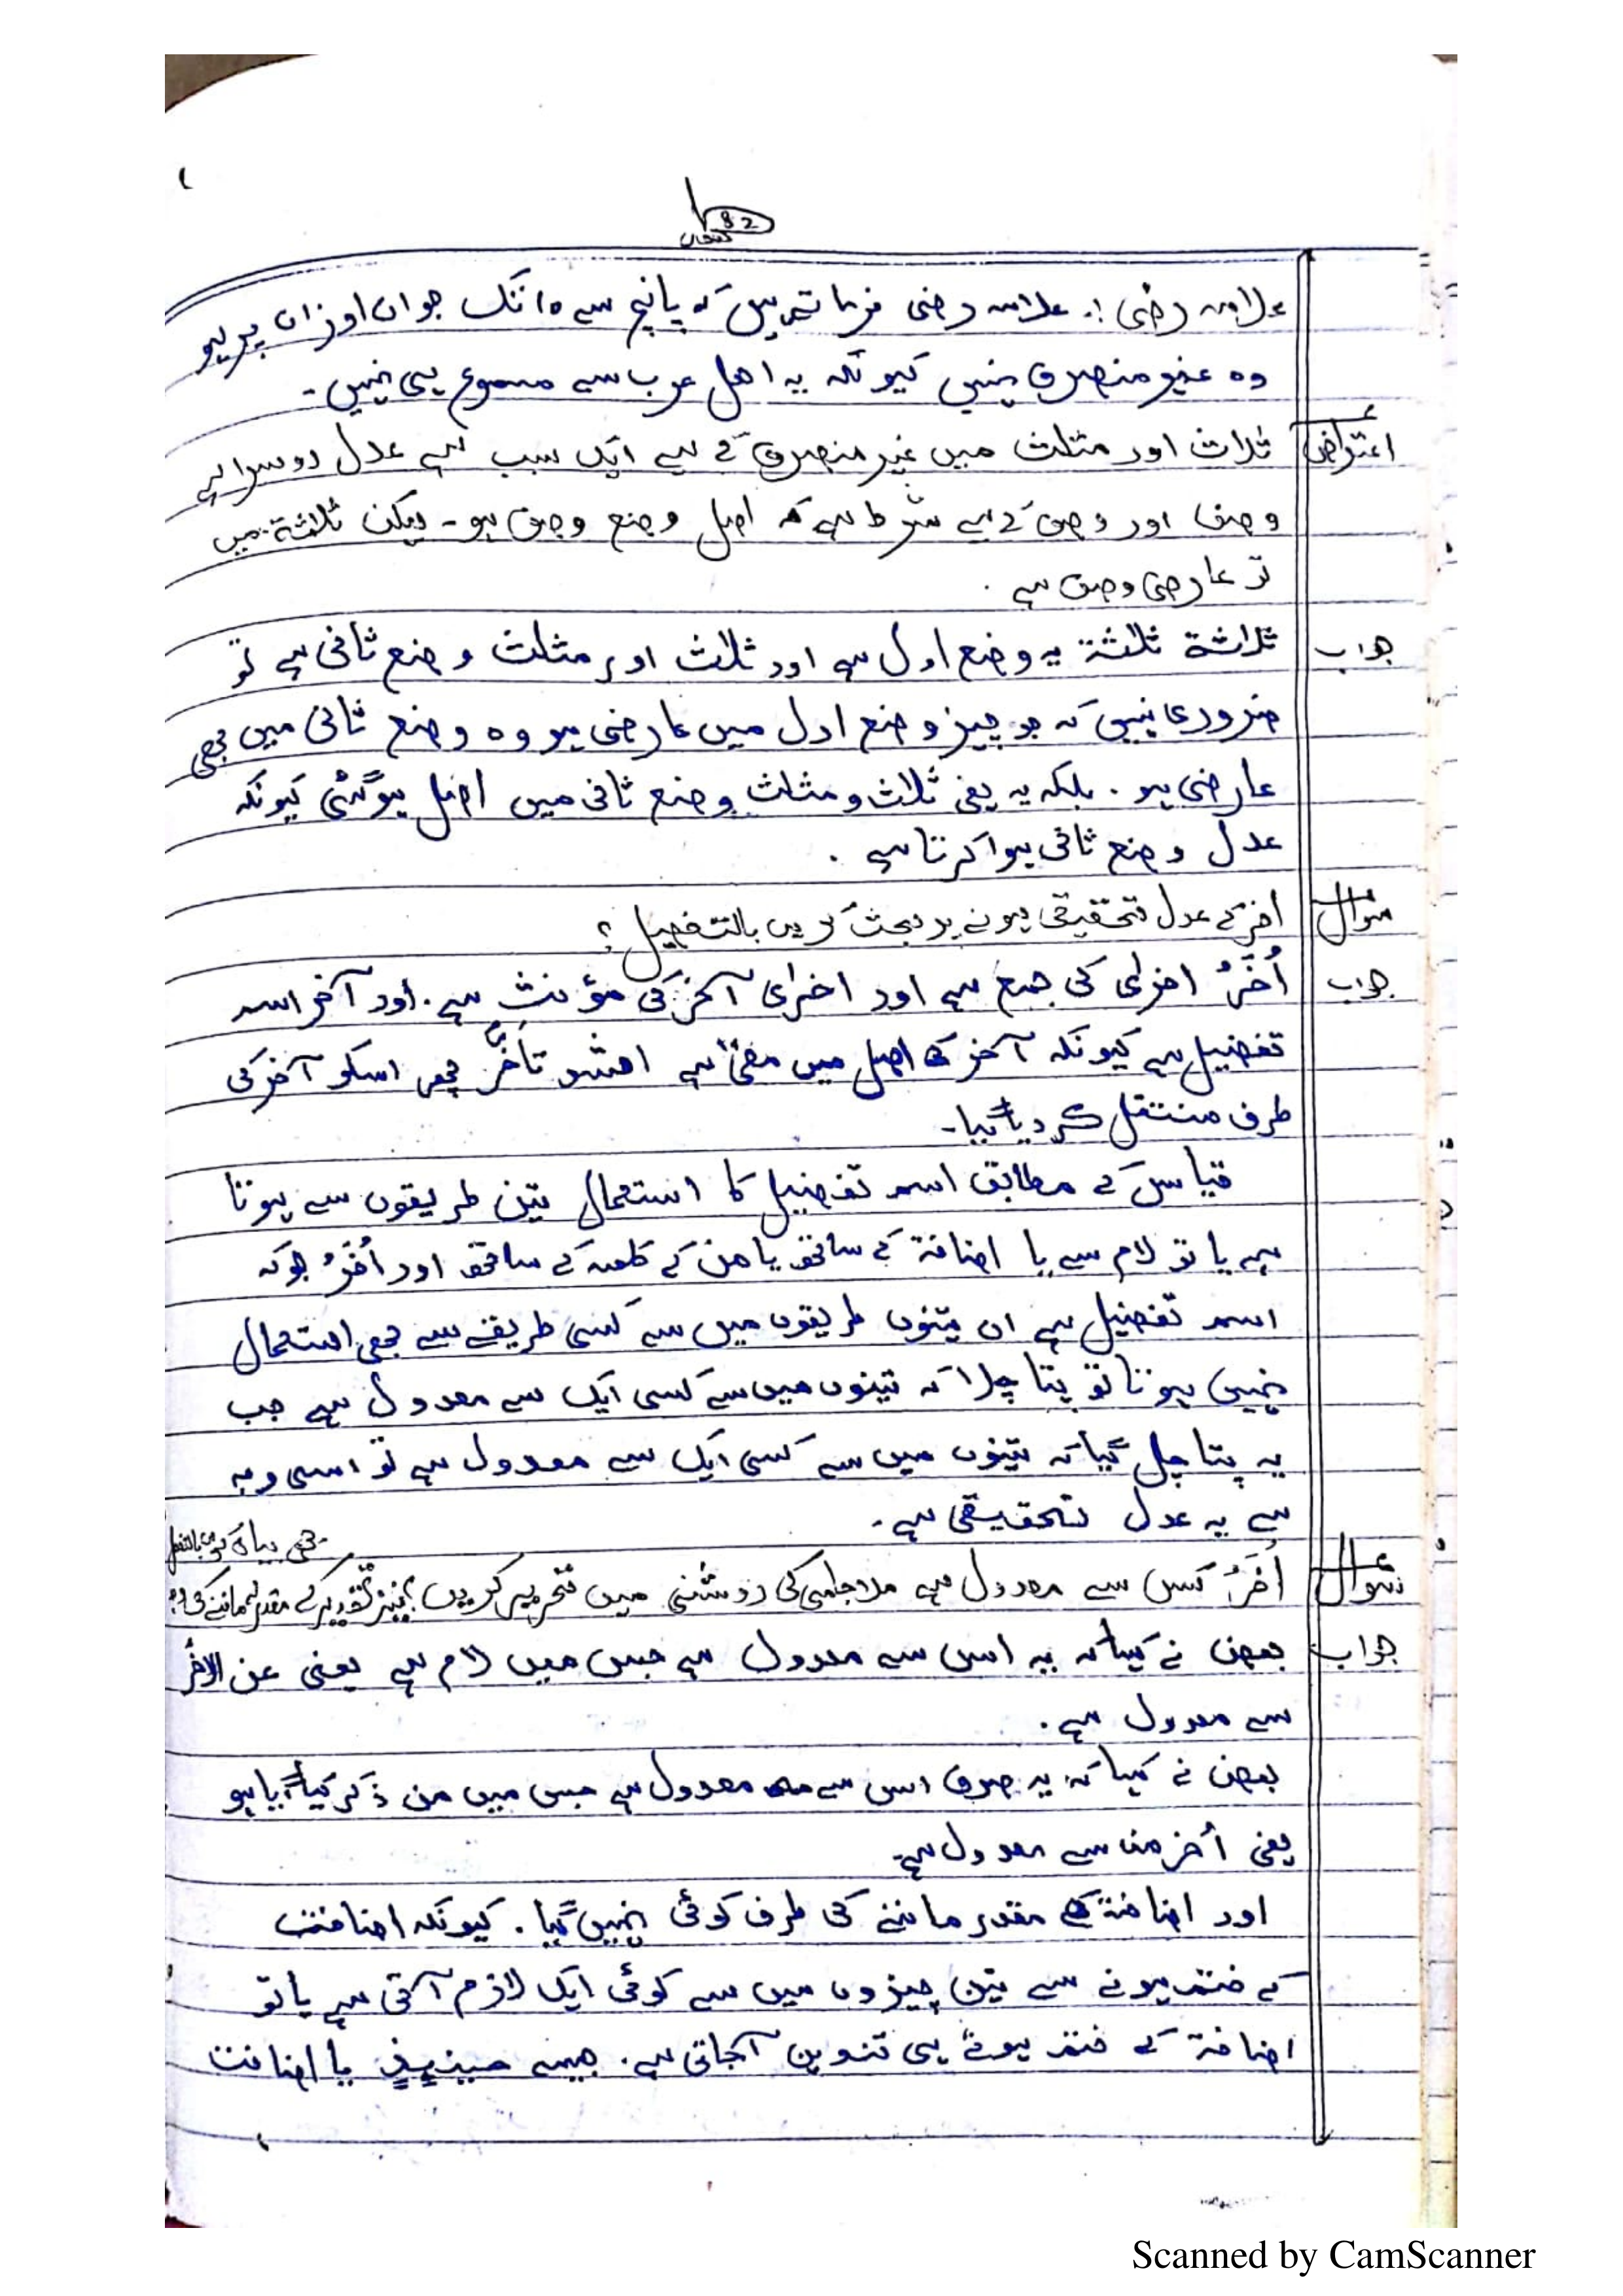 82
علامہ رضی :. علامہ رضی فرماتے ہیں کہ پانچ سے ۱۰ تک جو ان اوزان پر ہو
وہ غیر منصرف نہیں کیونکہ یہ اہل عرب سے مسموع ہی نہیں۔
اعتراض ثلاث اور مثلث میں غیر منصرف کے لیے ایک سبب ہے عدل دوسرا ہے
وصف اور وصف کے لیے شرط ہے کہ اصل وضع وصف ہو۔ لیکن ثلثة میں
تو عارضی وصف ہے .
جواب ثلاثة ثلثة یہ وضع اول ہے اور ثلاث اور مثلث وضع ثانی ہے تو
ضروری نہیں کہ جو چیز وضع اول میں عارضی ہو وہ وضع ثانی میں بھی
عارضی ہو . بلکہ یہ یعنی ثلاث و مثلث وضع ثانی میں اصل ہوگئی کیونکہ
عدل وضع ثانی ہوا کرتا ہے .
سوال اخر کے عدل تحقیقی ہونے پر بحث کریں بالتفصیل ؟
جواب أُخَرُ اخرٰی کی جمع ہے اور اخرٰی آخر کی مؤنث ہے. اور آخر اسم
تفضیل ہے کیونکہ آخر کا اصل میں معنیٰ ہے اشد تأخّر پھر اسکو آخر کی
طرف منتقل کر دیا گیا۔
قیاس کے مطابق اسم تفضیل کا استعمال تین طریقوں سے ہوتا
ہے یا تو لام سے یا اضافة کے ساتھ یا من کے کلمہ کے ساتھ اور اُخَرُ جو کہ
اسم تفضیل ہے ان تینوں طریقوں میں سے کسی طریقے سے بھی استعمال
نہیں ہوتا تو پتا چلا کہ تینوں میں سے کسی ایک سے معدول ہے جب
یہ پتا چل گیا کہ تینوں میں سے کسی ایک سے معدول ہے تو اسی وجہ
سے یہ عدل تحقیقی ہے۔
سوال اُخَرُ کس سے معدول ہے ملا جامی کی روشنی میں تحریر کریں؟ نیز تقدیر کے مقدر ماننے کی
بھی بیان کریں بالتفصیل
جواب بعض نے کہا کہ یہ اس سے معدول ہے جس میں لام ہے یعنی عن الاخر
سے معدول ہے .
بعض نے کہا کہ یہ صرف اس سے معدول ہے جس میں من ذکر کیا گیا ہو
یعنی أخر من سے معدول ہے۔
اور اضافة کے مقدر ماننے کی طرف کوئی نہیں گیا . کیونکہ اضافت
کے ختم ہونے سے تین چیزوں میں سے کوئی ایک لازم آتی ہے یا تو
اضافة کے ختم ہوتے ہی تنوین آجاتی ہے . جیسے حینئذٍ یا اضافت
Scanned by CamScanner